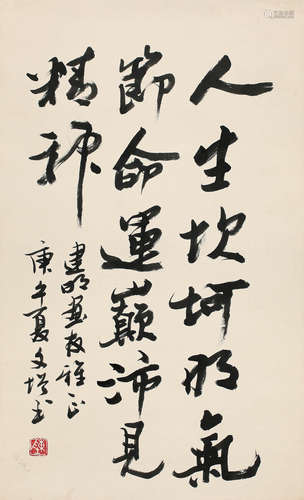 人生坎坷明氣
節命運巔沛見
精神
建明畫友雅正
庚午夏文增書